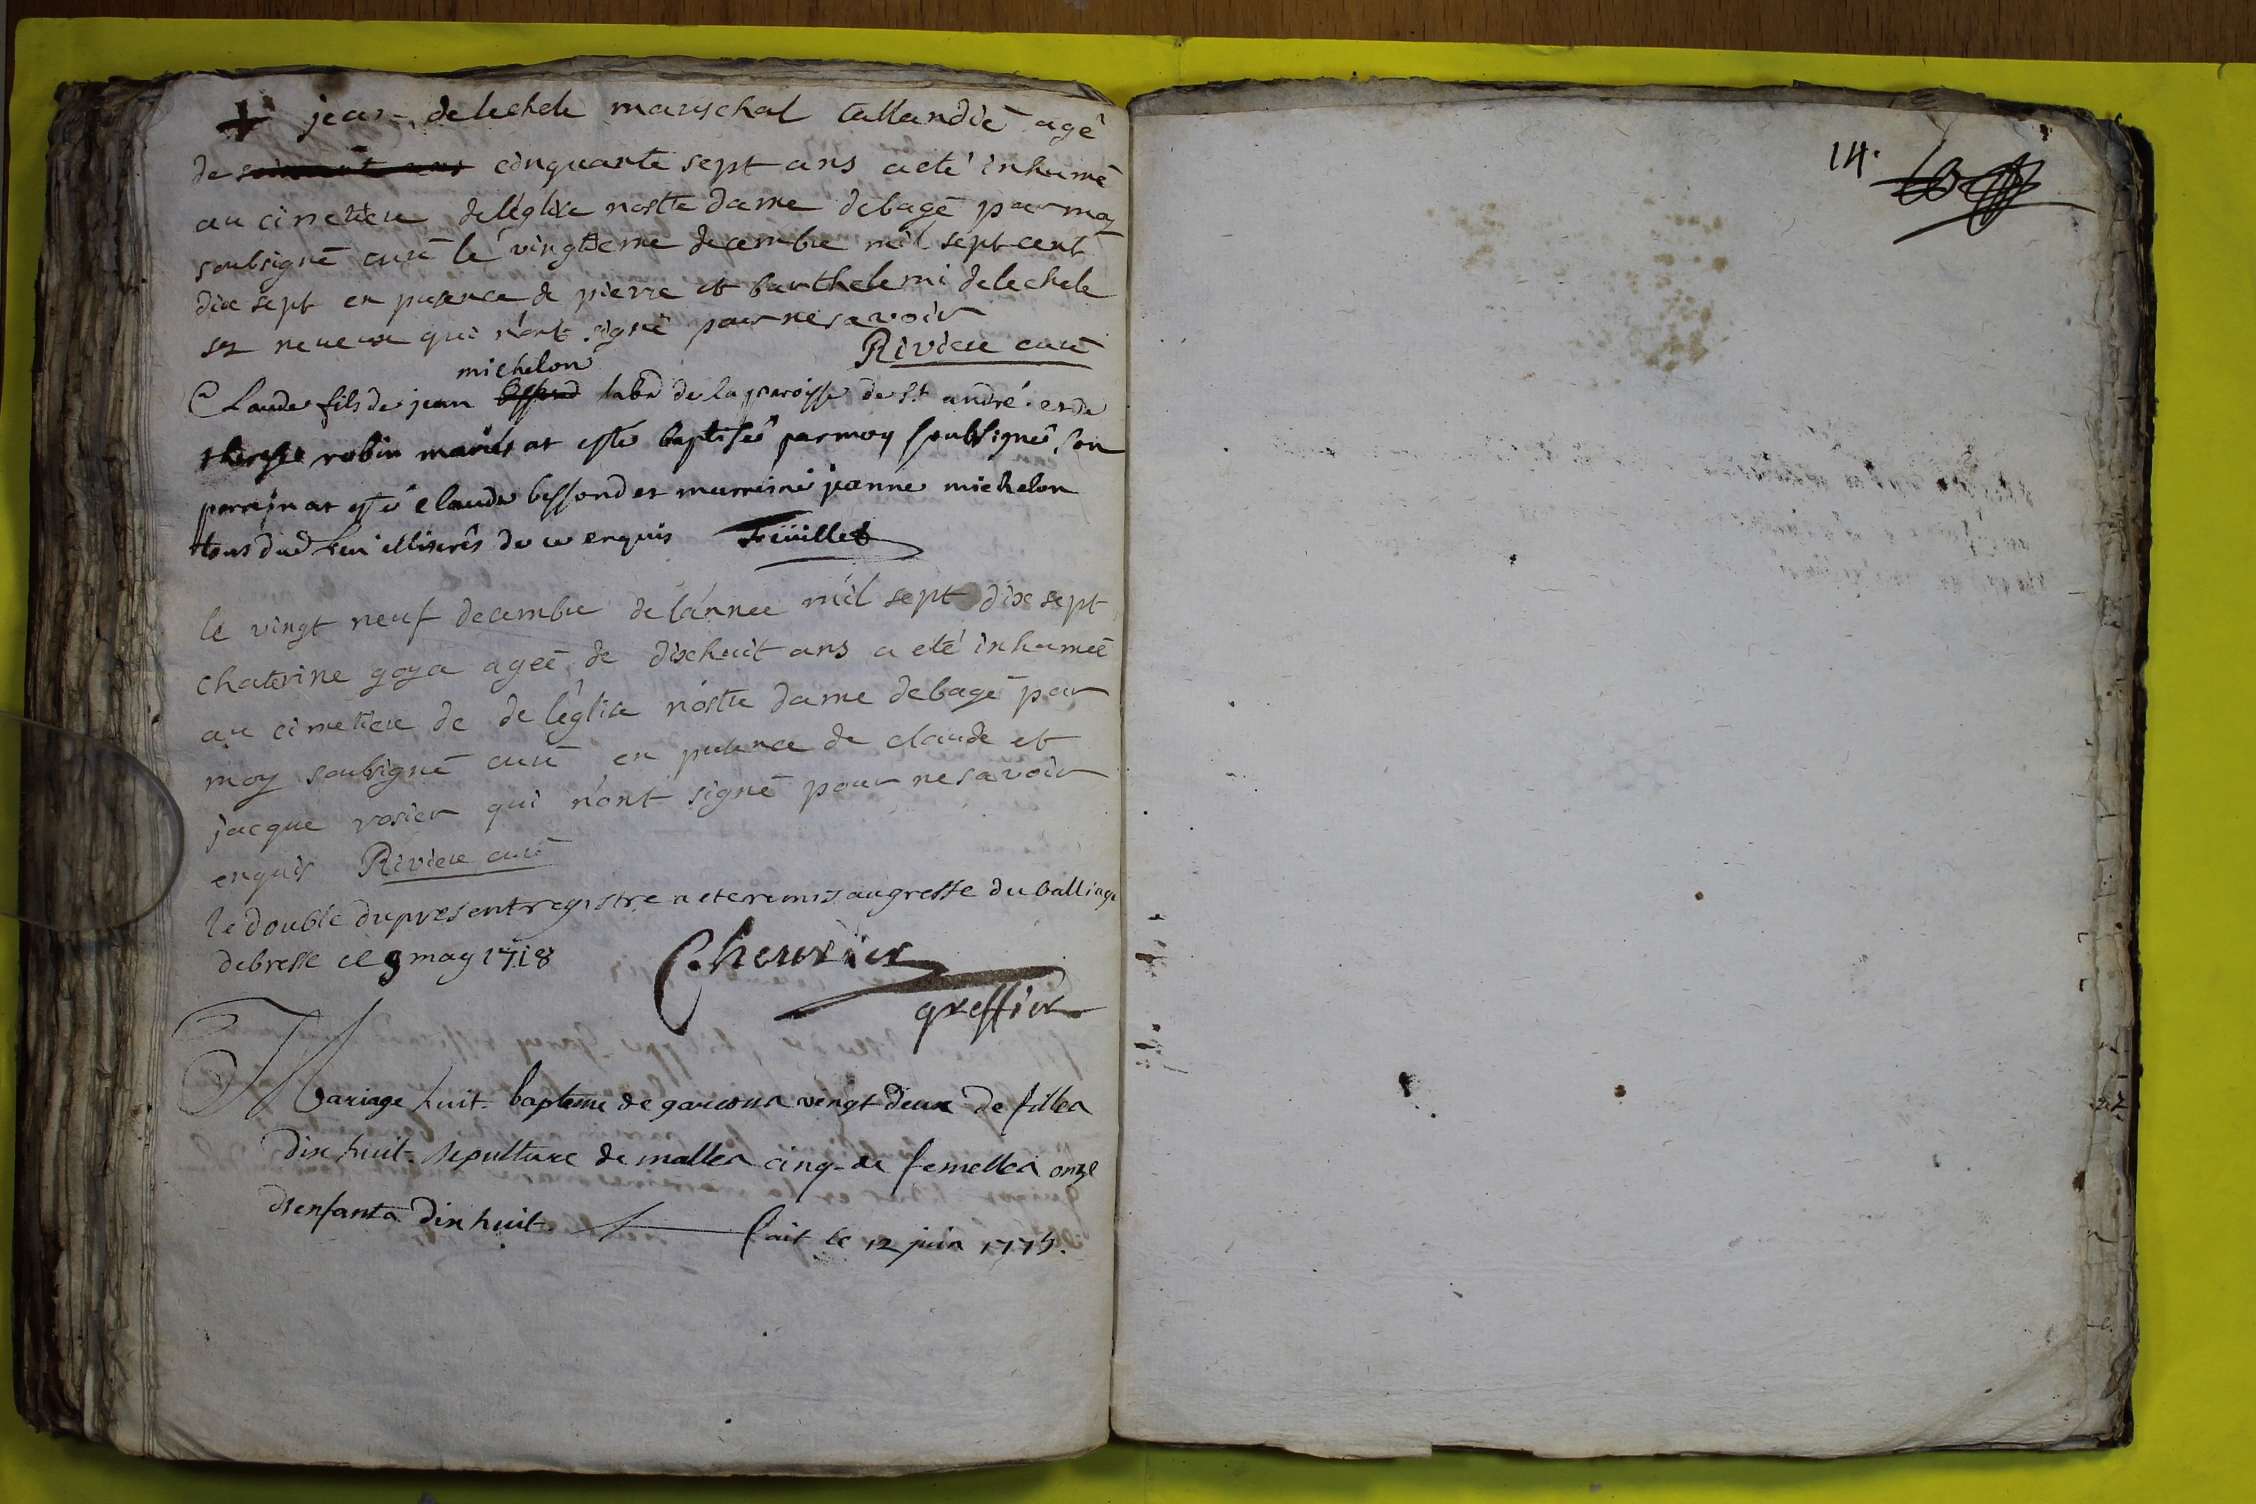 + jean delechele mareschal tallandiē agē
de cinquante sept ans a eté inhumē
au cimetiere de léglise nostre dame de bagē par moy
soubsignē curē le vingtieme decembre mil sept cent
dix sept en presence de pierre et barthelemi delechele
ses neveux qui n'ont signē pour ne savoir
Riviere curē
michelon
Claude fils de jean labr de la parroisse de St andré et de
therese robin mariés at esté baptisé par moy soubsigné, son
parrin at esté claude bessond et marreine janne michelon
tous dud lieu illiterés de ce enquis Feüillet
le vingt neuf decembre de l'annee mil sept dix sept
chaterine goya ageē de dixhuit ans a eté inhumeē
au cimetiere de de l'église nostre dame de bagē par
moy soubsignē curē en presence de claude et
jacque rosier qui n'ont signē pour ne savoir
enquis Riviere curē
le double du present registre a ete remis au greffe du balliage
de bresse ce 9 may 1718
Cheurier
greffier
Mariage huit. bapteme de garcons vingt deux de filles
dix huit. sepulture de malles cinq. de femelles onze
d'enfants dix huit. fait le 12 juin 1775.
14.